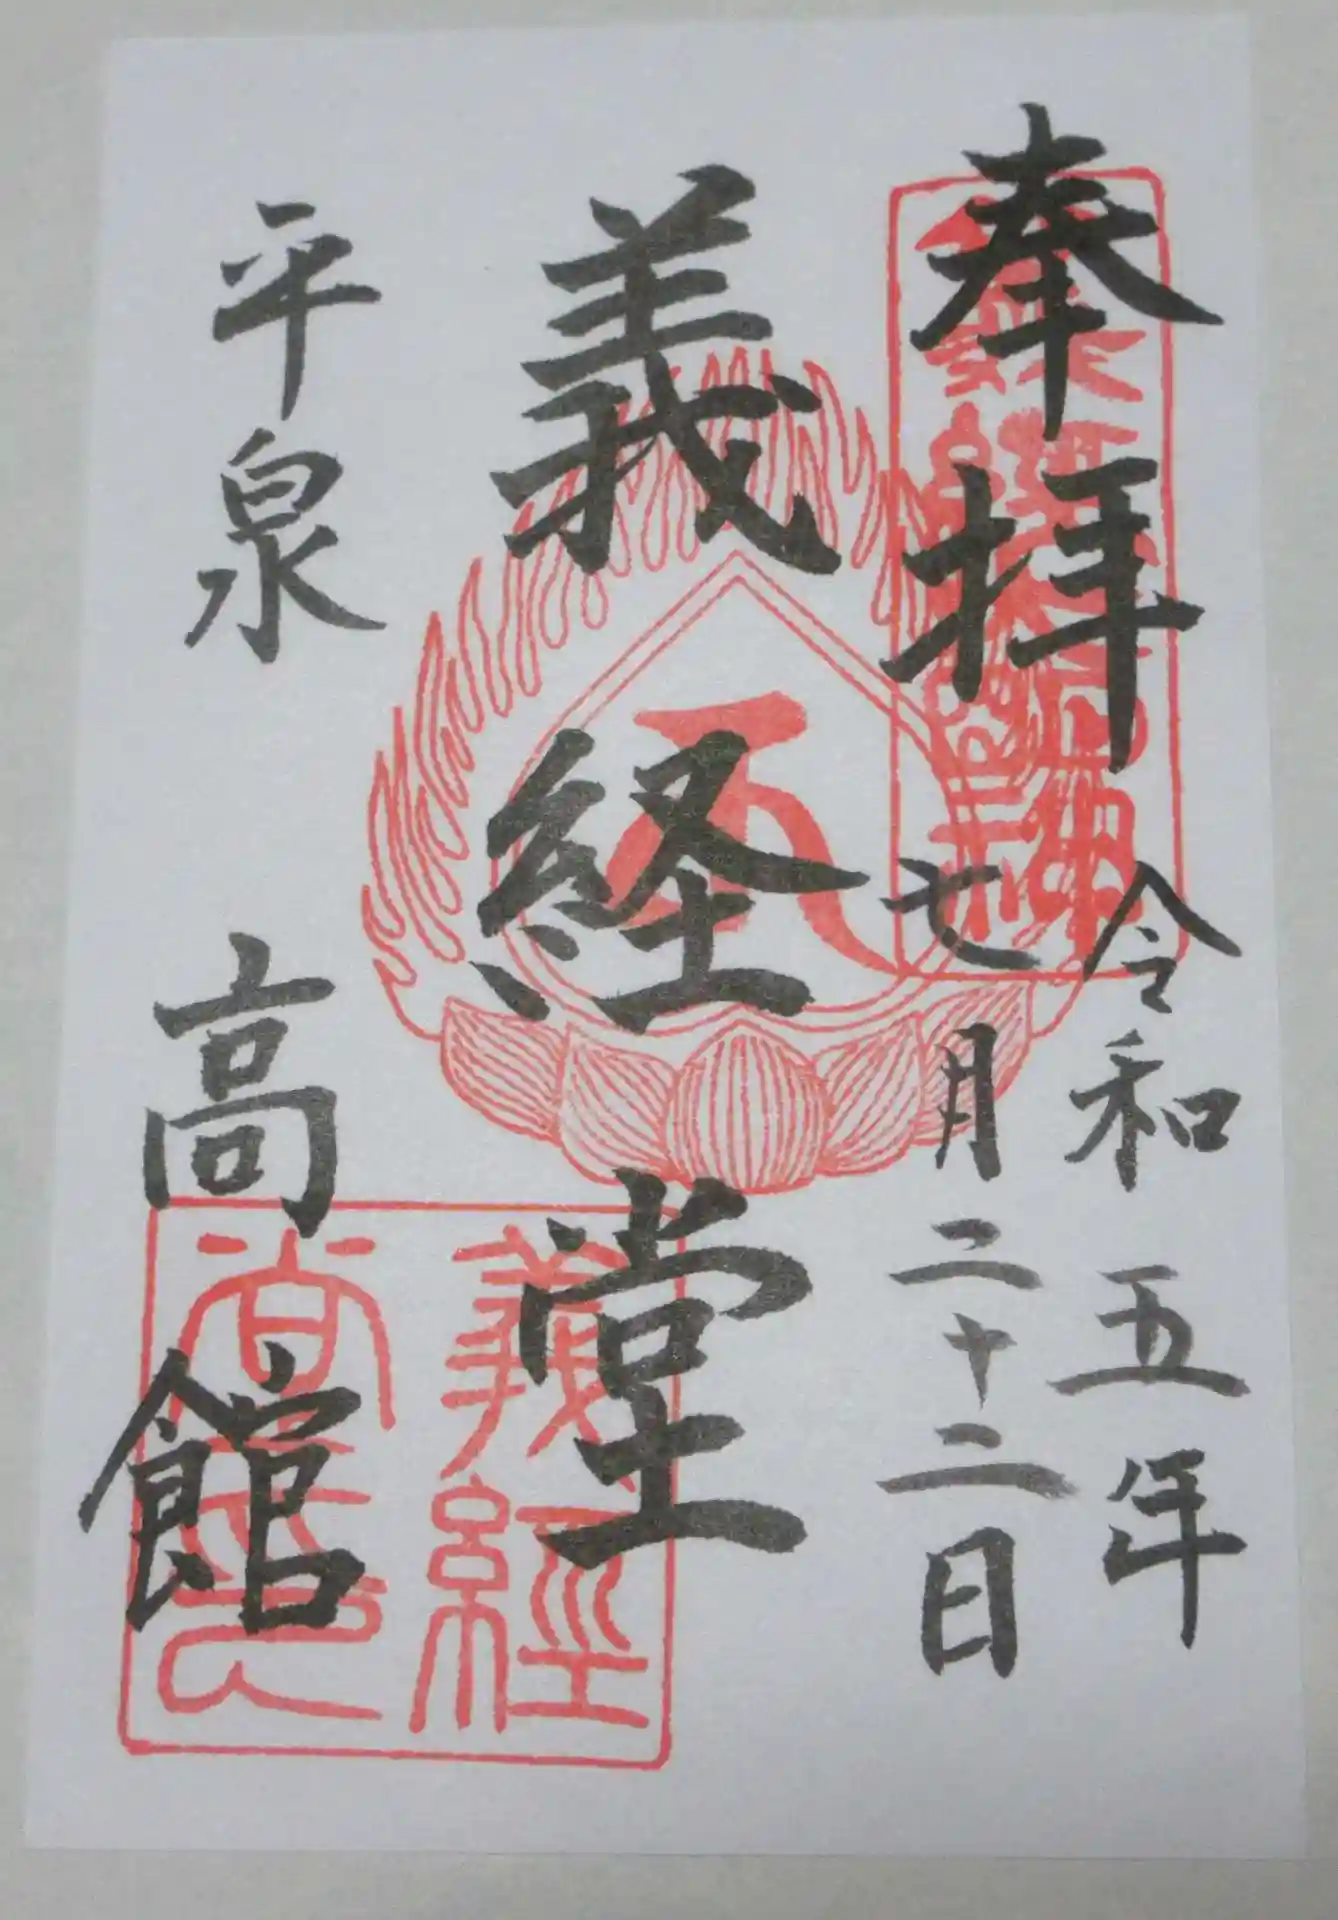 奉拝
令和五年
七月二十二日
義経堂
平泉
高館
義經
堂印